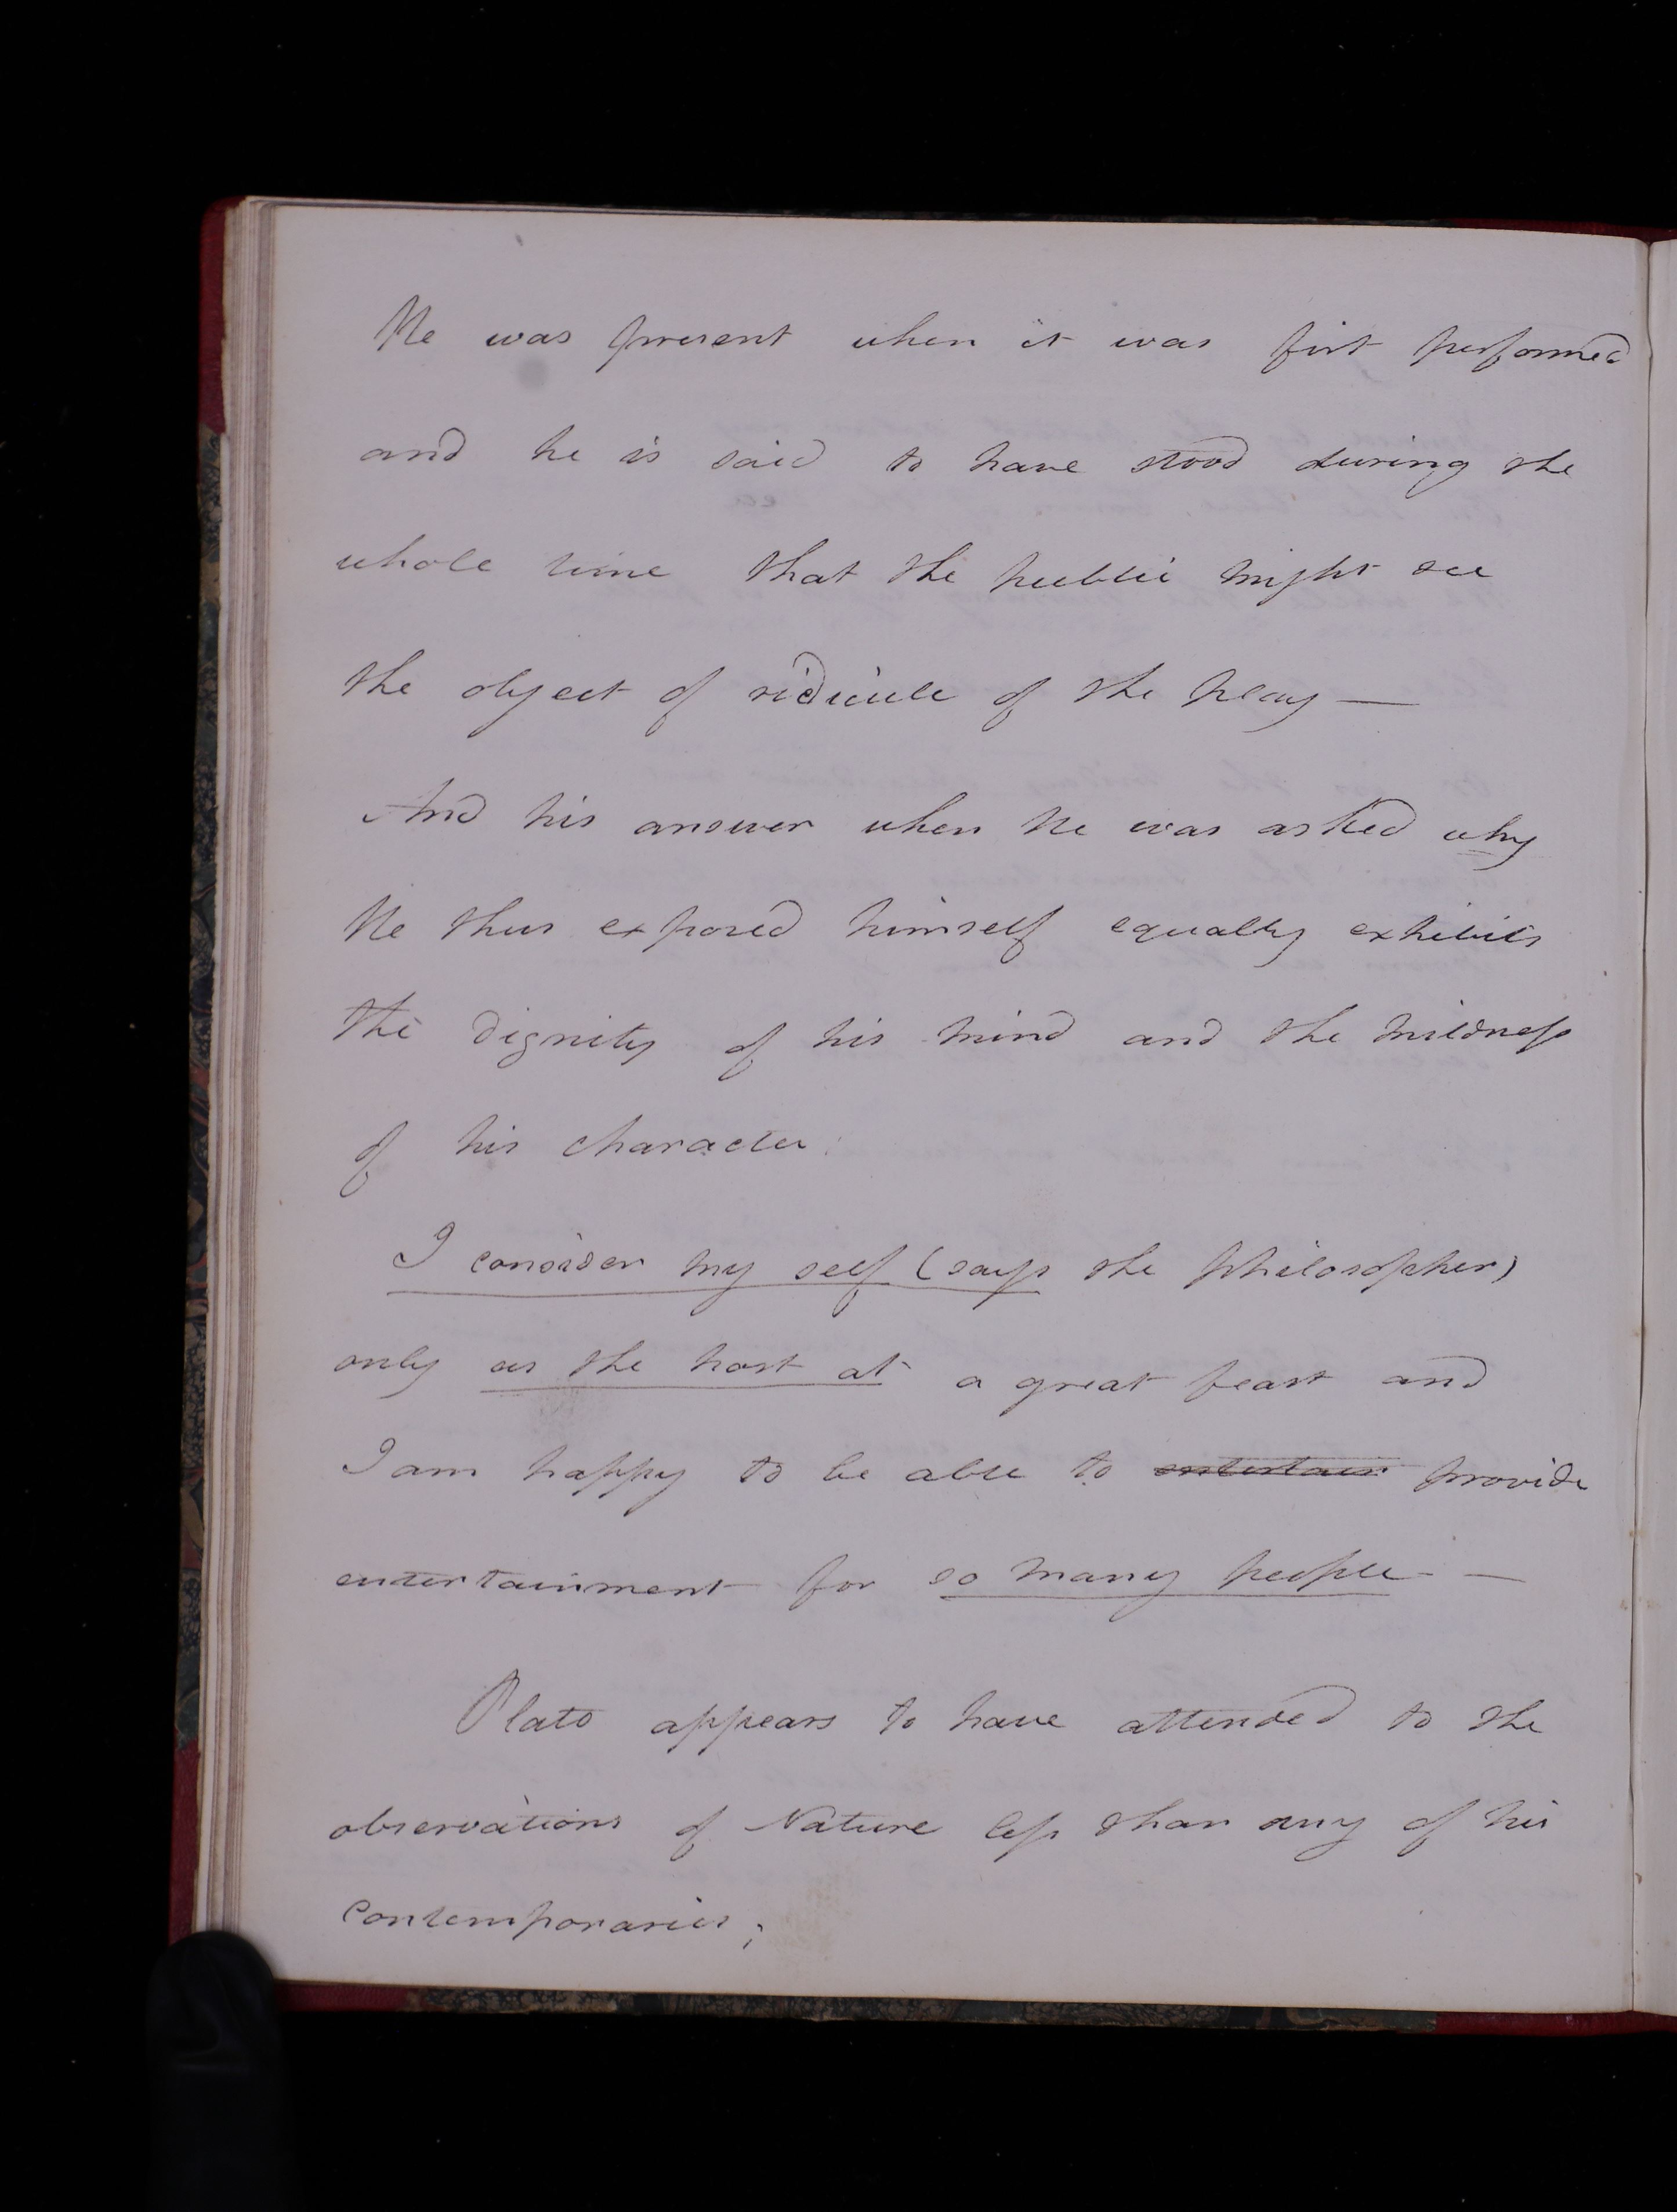 He was present when it was first performed
and he is said to have stood during the
whole time that the public might see
the object of ridicule of the play —
And his answer when he was asked why
He thus exposed himself equally exhibits
the dignity of his mind and the mildness
of his character:
I consider my self (says the philosopher)
only as the host at a great feast and
I am happy to be able to entertain provide
entertainment for so many people —
Plato appears to have attended to the
observations of Nature less than any of his
contemporaries;